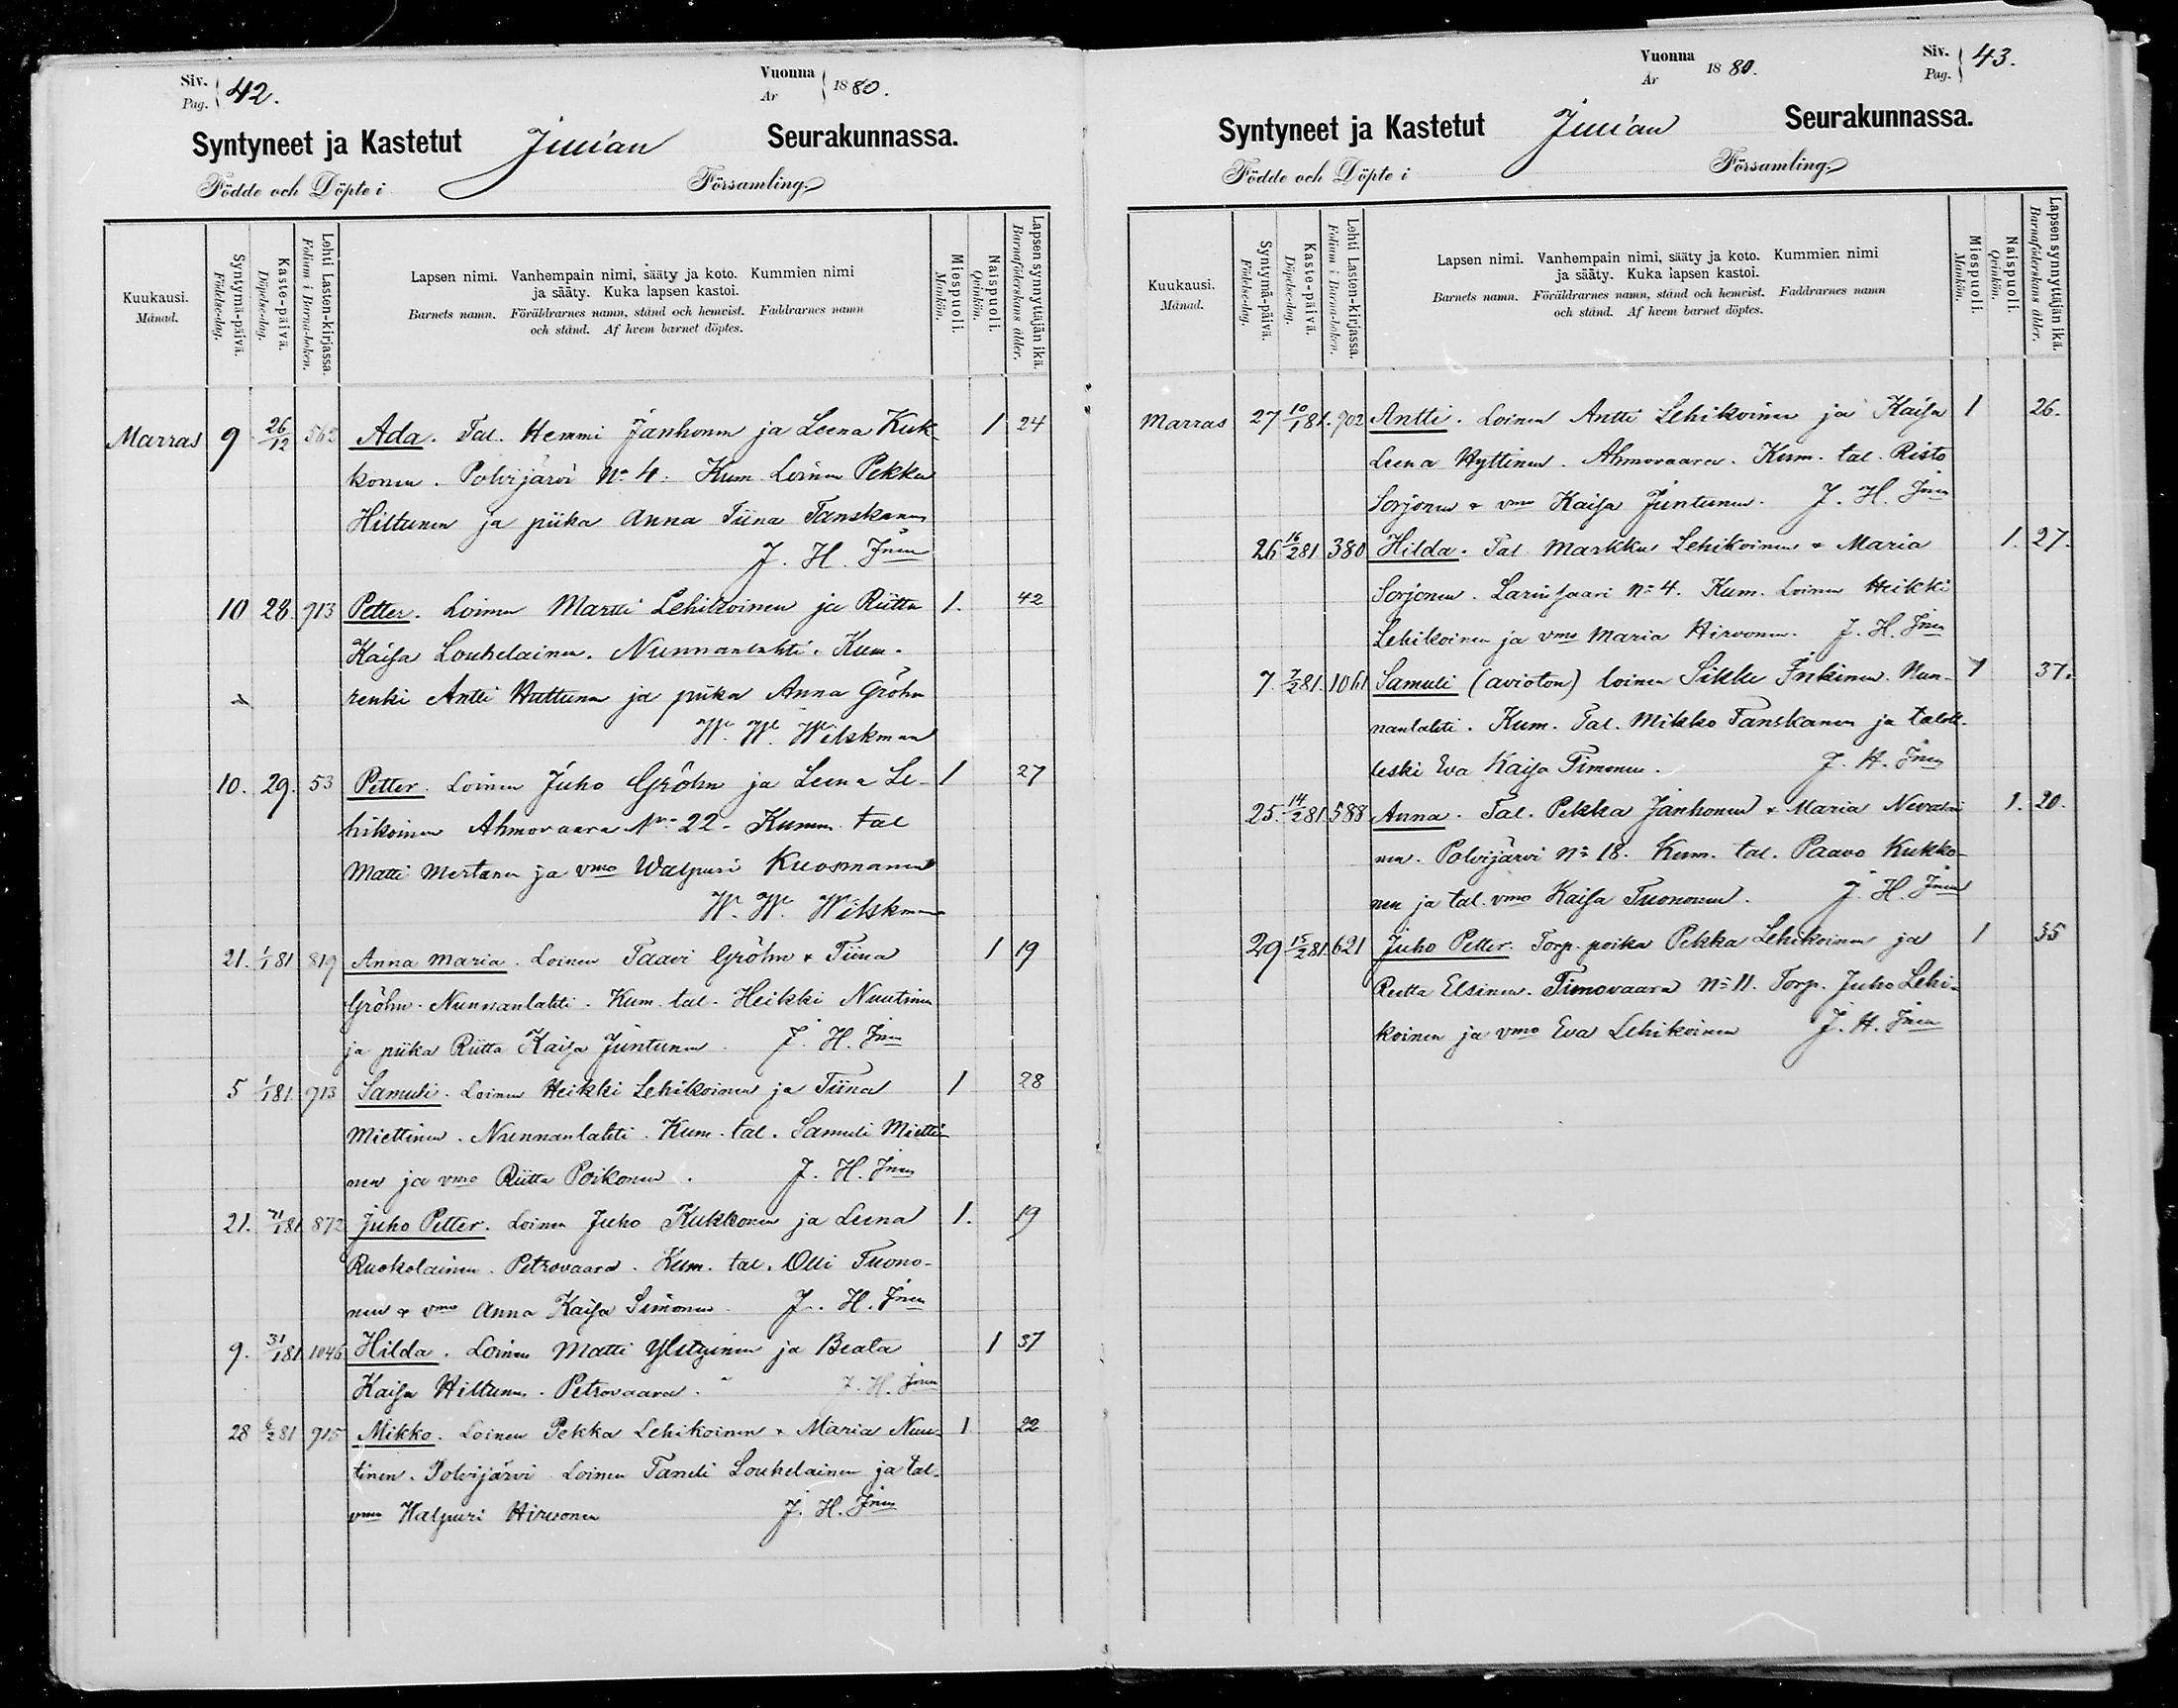 Siv. Pag. 42.
Vuonna År 1880.
Syntyneet ja Kastetut Juuan Seurakunnassa.
Födde och Döpte i Församling.
Kuukausi. Månad.
Syntymä-päivä. Födelse-dag.
Kaste-päivä. Döpelse-dag.
Lehti Lasten-kirjassa. Folium i Barna-boken.
Lapsen nimi. Vanhempain nimi, sääty ja koto. Kummien nimi
ja sääty. Kuka lapsen kastoi.
Barnets namn. Föräldrarnes namn, stånd och hemvist. Faddrarnes namn
och stånd. Af hvem barnet döptes.
Miespuoli. Mankön.
Naispuoli. Qvinkön.
Lapsen synnyttäjän ikä. Barnaföderskans ålder.
Marras 9 26/12 563 Ada. Tal. Hemmi Janhonen ja Leena Kuk- 1 24
konen. Polvijärvi No 4. Kum. Loinen Pekka
Hiltunen ja piika Anna Tiina Tanskanen
J. H. Jnen
10 28. 913 Petter. Loinen Martti Lehikoinen ja Riitta 1. 42
Kaisa Louhelainen. Nunnanlahti. Kum.
renki Antti Huttunen ja piika Anna Gröhn
W. W. Wilskman
10. 29. 53 Petter. Loinen Juho Gröhn ja Leena Le- 1 27
hikoinen Ahmovaara No 22. Kumm. tal
Matti Mertanen ja vmo Walpuri Kuosmanen
W. W. Wilskman
21. 1/1 81 819 Anna Maria. Loinen Taavi Gröhn & Tiina 1 19
Gröhn. Nunnanlahti. Kum. tal. Heikki Nuutinen
ja piika Riitta Kaisa Juntunen. J. H. Jnen
5 1/1 81. 913 Samuli. Loinen Heikki Lehikoinen ja Tiina 1 28
Miettinen. Nunnanlahti. Kum. tal. Samuli Mietti-
nen ja vmo Riitta Poikonen. J. H. Jnen
21. 21/1 81 872 Juho Petter. Loinen Juho Kukkonen ja Leena 1. 19
Ruokolainen. Petrovaara. Kum. tal. Olli Tuono-
nen & vmo Anna Kaisa Simonen. J. H. Jnen
9. 31/1 81 1046 Hilda. Loinen Matti Ylityinen ja Beata 1 37
Kaisa Hiltunen. Petrovaara. J. H. Jnen
28 6/2 81 915 Mikko. Loinen Pekka Lehikoinen & Maria Nuu- 1. 22
tinen. Polvijärvi Loinen Taneli Louhelainen ja tal.
vmo Walpuri Hirvonen J. H. Jnen
Vuonna År 1880.
Siv. Pag. 43.
Syntyneet ja Kastetut Juuan Seurakunnassa.
Födde och Döpte i Församling.
Kuukausi. Månad.
Syntymä-päivä. Födelse-dag.
Kaste-päivä. Döpelse-dag.
Lehti Lasten-kirjassa. Folium i Barna-boken.
Lapsen nimi. Vanhempain nimi, sääty ja koto. Kummien nimi
ja sääty. Kuka lapsen kastoi.
Barnets namn. Föräldrarnes namn, stånd och hemvist. Faddrarnes namn
och stånd. Af hvem barnet döptes.
Miespuoli. Mankön.
Naispuoli. Qvinkön.
Lapsen synnyttäjän ikä. Barnaföderskans ålder.
Marras 27 10/1 81. 902 Antti. Loinen Antti Lehikoinen ja Kaisa 1 26.
Leena Hyttinen. Ahmovaara. Kum. tal. Risto
Sorjonen & vmo Kaisa Juntunen. J. H. Jnen
26 16/2 81 380 Hilda. Tal. Markku Lehikoinen & Maria 1. 27.
Sorjonen. Larinsaari No 4. Kum. Loinen Heikki
Lehikoinen ja vmo Maria Hirvonen. J. H. Jnen
7. 7/2 81. 1061 Samuli (avioton) loinen Sikke Inkinen. Nun- 1 37.
nanlahti. Kum. Tal. Mikko Tanskanen ja talol.
leski Eva Kaisa Timonen. J. H. Jnen
25. 14/2 81. 588 Anna. Tal. Pekka Janhonen & Maria Nevalai 1. 20.
nen. Polvijärvi No 18. Kum. tal. Paavo Kukko-
nen ja tal. vmo Kaisa Tuononen. J. H. Jnen
29 15/2 81. 621 Juho Petter. Torp. poika Pekka Lehikoinen ja 1 35
Reetta Elsinen. Timovaara No 11. Torp. Juho Lehi-
koinen ja vmo Eva Lehikoinen J. H. Jnen